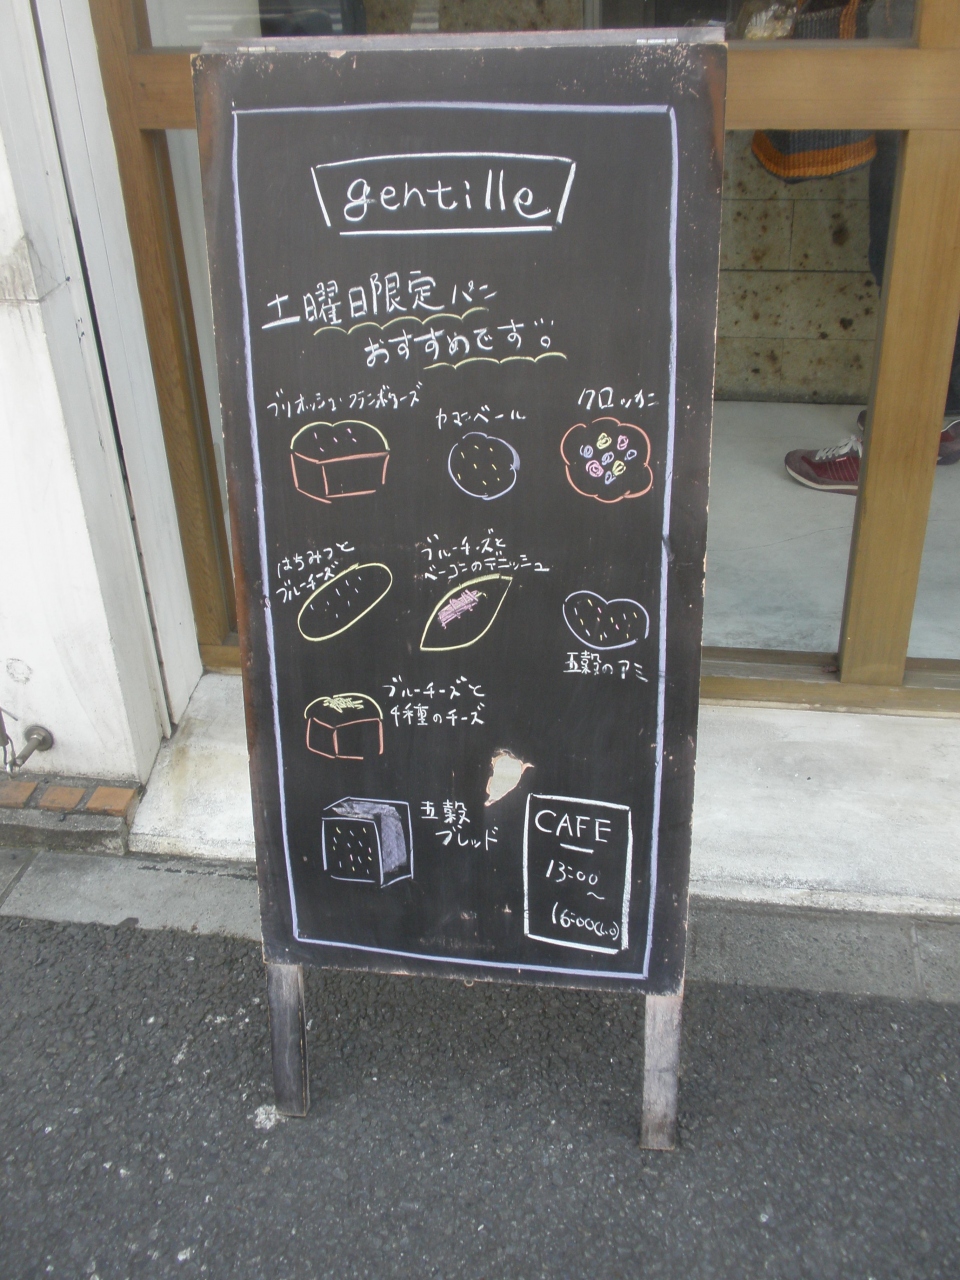 gentille
土曜日限定パン
おすすめです。
ブリオッシュ・フランボワーズ
カマンベール
クロッカン
はちみつと
ブルーチーズ
ブルーチーズと
ベーコンのデニッシュ
五穀のアミ
ブルーチーズと
4種のチーズ
五穀
ブレッド
CAFE
13:00
～
16:00(L.O)